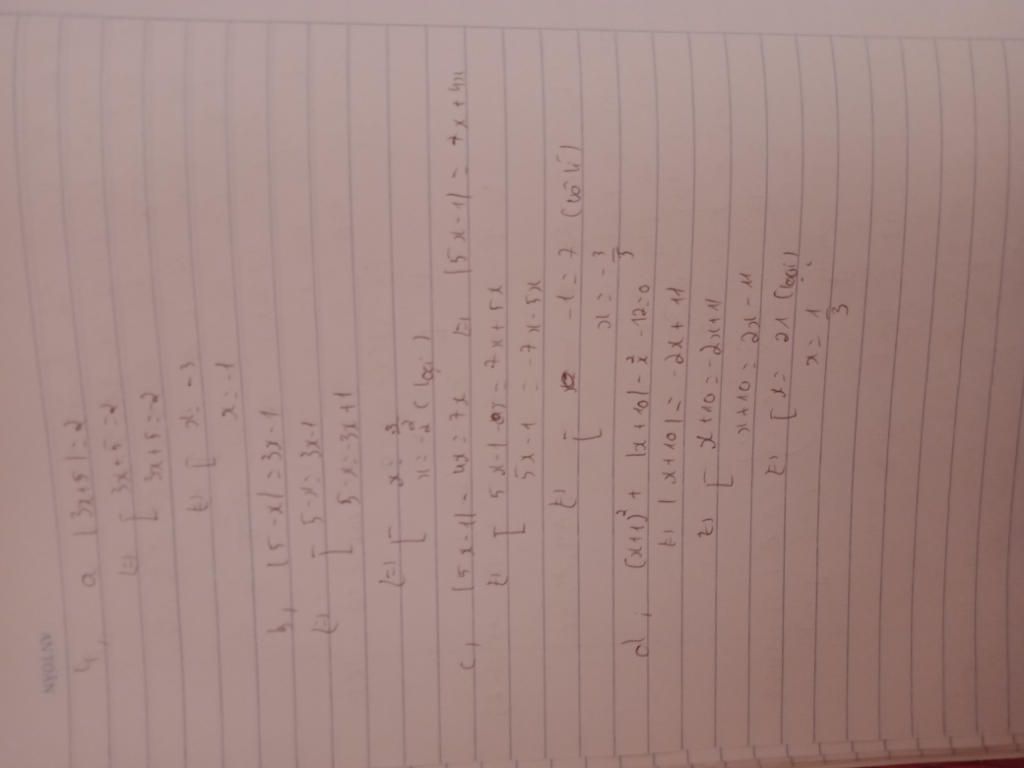 ANTOÀN
4, a |3x+5|=2
<=> [ 3x+5=2
3x+5=-2
<=> [ x=-3
x=-1
b, |5-x|=3x-1
<=> [ 5-x=3x-1
5-x=-3x+1
<=> [ x= 3/2
x=-2 (loại)
c, |5x-1|-4x=7x <=> |5x-1|=7x+4x
<=> [ 5x-1=7x+5x
5x-1=-7x-5x
<=> [ -1=7 (vô lí)
x=-3/5
d, (x+1)²+|x+10|-x²-12=0
<=> |x+10|=-2x+11
<=> [ x+10=-2x+11
x+10=2x-11
<=> [ x=21 (loại)
x=1/3